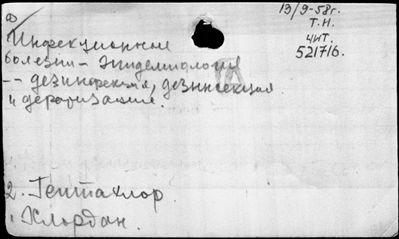 19/9-58г.
т.н.
чит.
521716.
Инфекционные
болезни - эпидемиология
-- дезинфекция, дезинсекция
и дератизация.
2. Гептахлор
1 Хлордан.